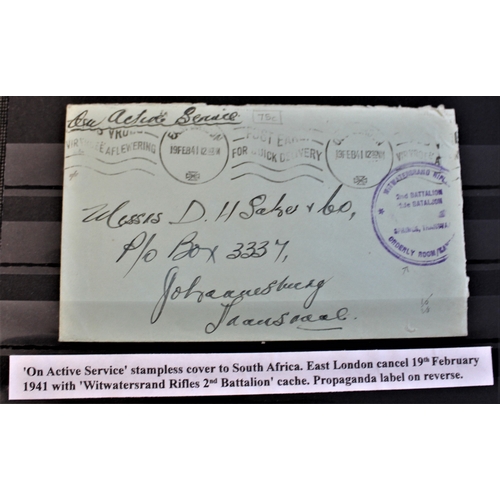 On Active Service
75c
VROEG
POST EARLY
VIR AFLEWERING
19 FEB 41 12
FOR QUICK DELIVERY
19 FEB 41 12
WITWATERSRAND RIFLES
2nd BATTALION
BATALJON
ORDERLY ROOM
Messrs D. H Saker & Co,
P/o Box 3337,
Johannesburg
Transvaal.
'On Active Service' stampless cover to South Africa. East London cancel 19th February
1941 with 'Witwatersrand Rifles 2nd Battalion' cache. Propaganda label on reverse.